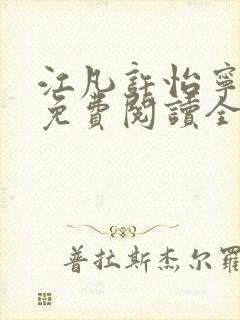 江凡許怡寧
免費閱讀全
普拉斯杰尔羅